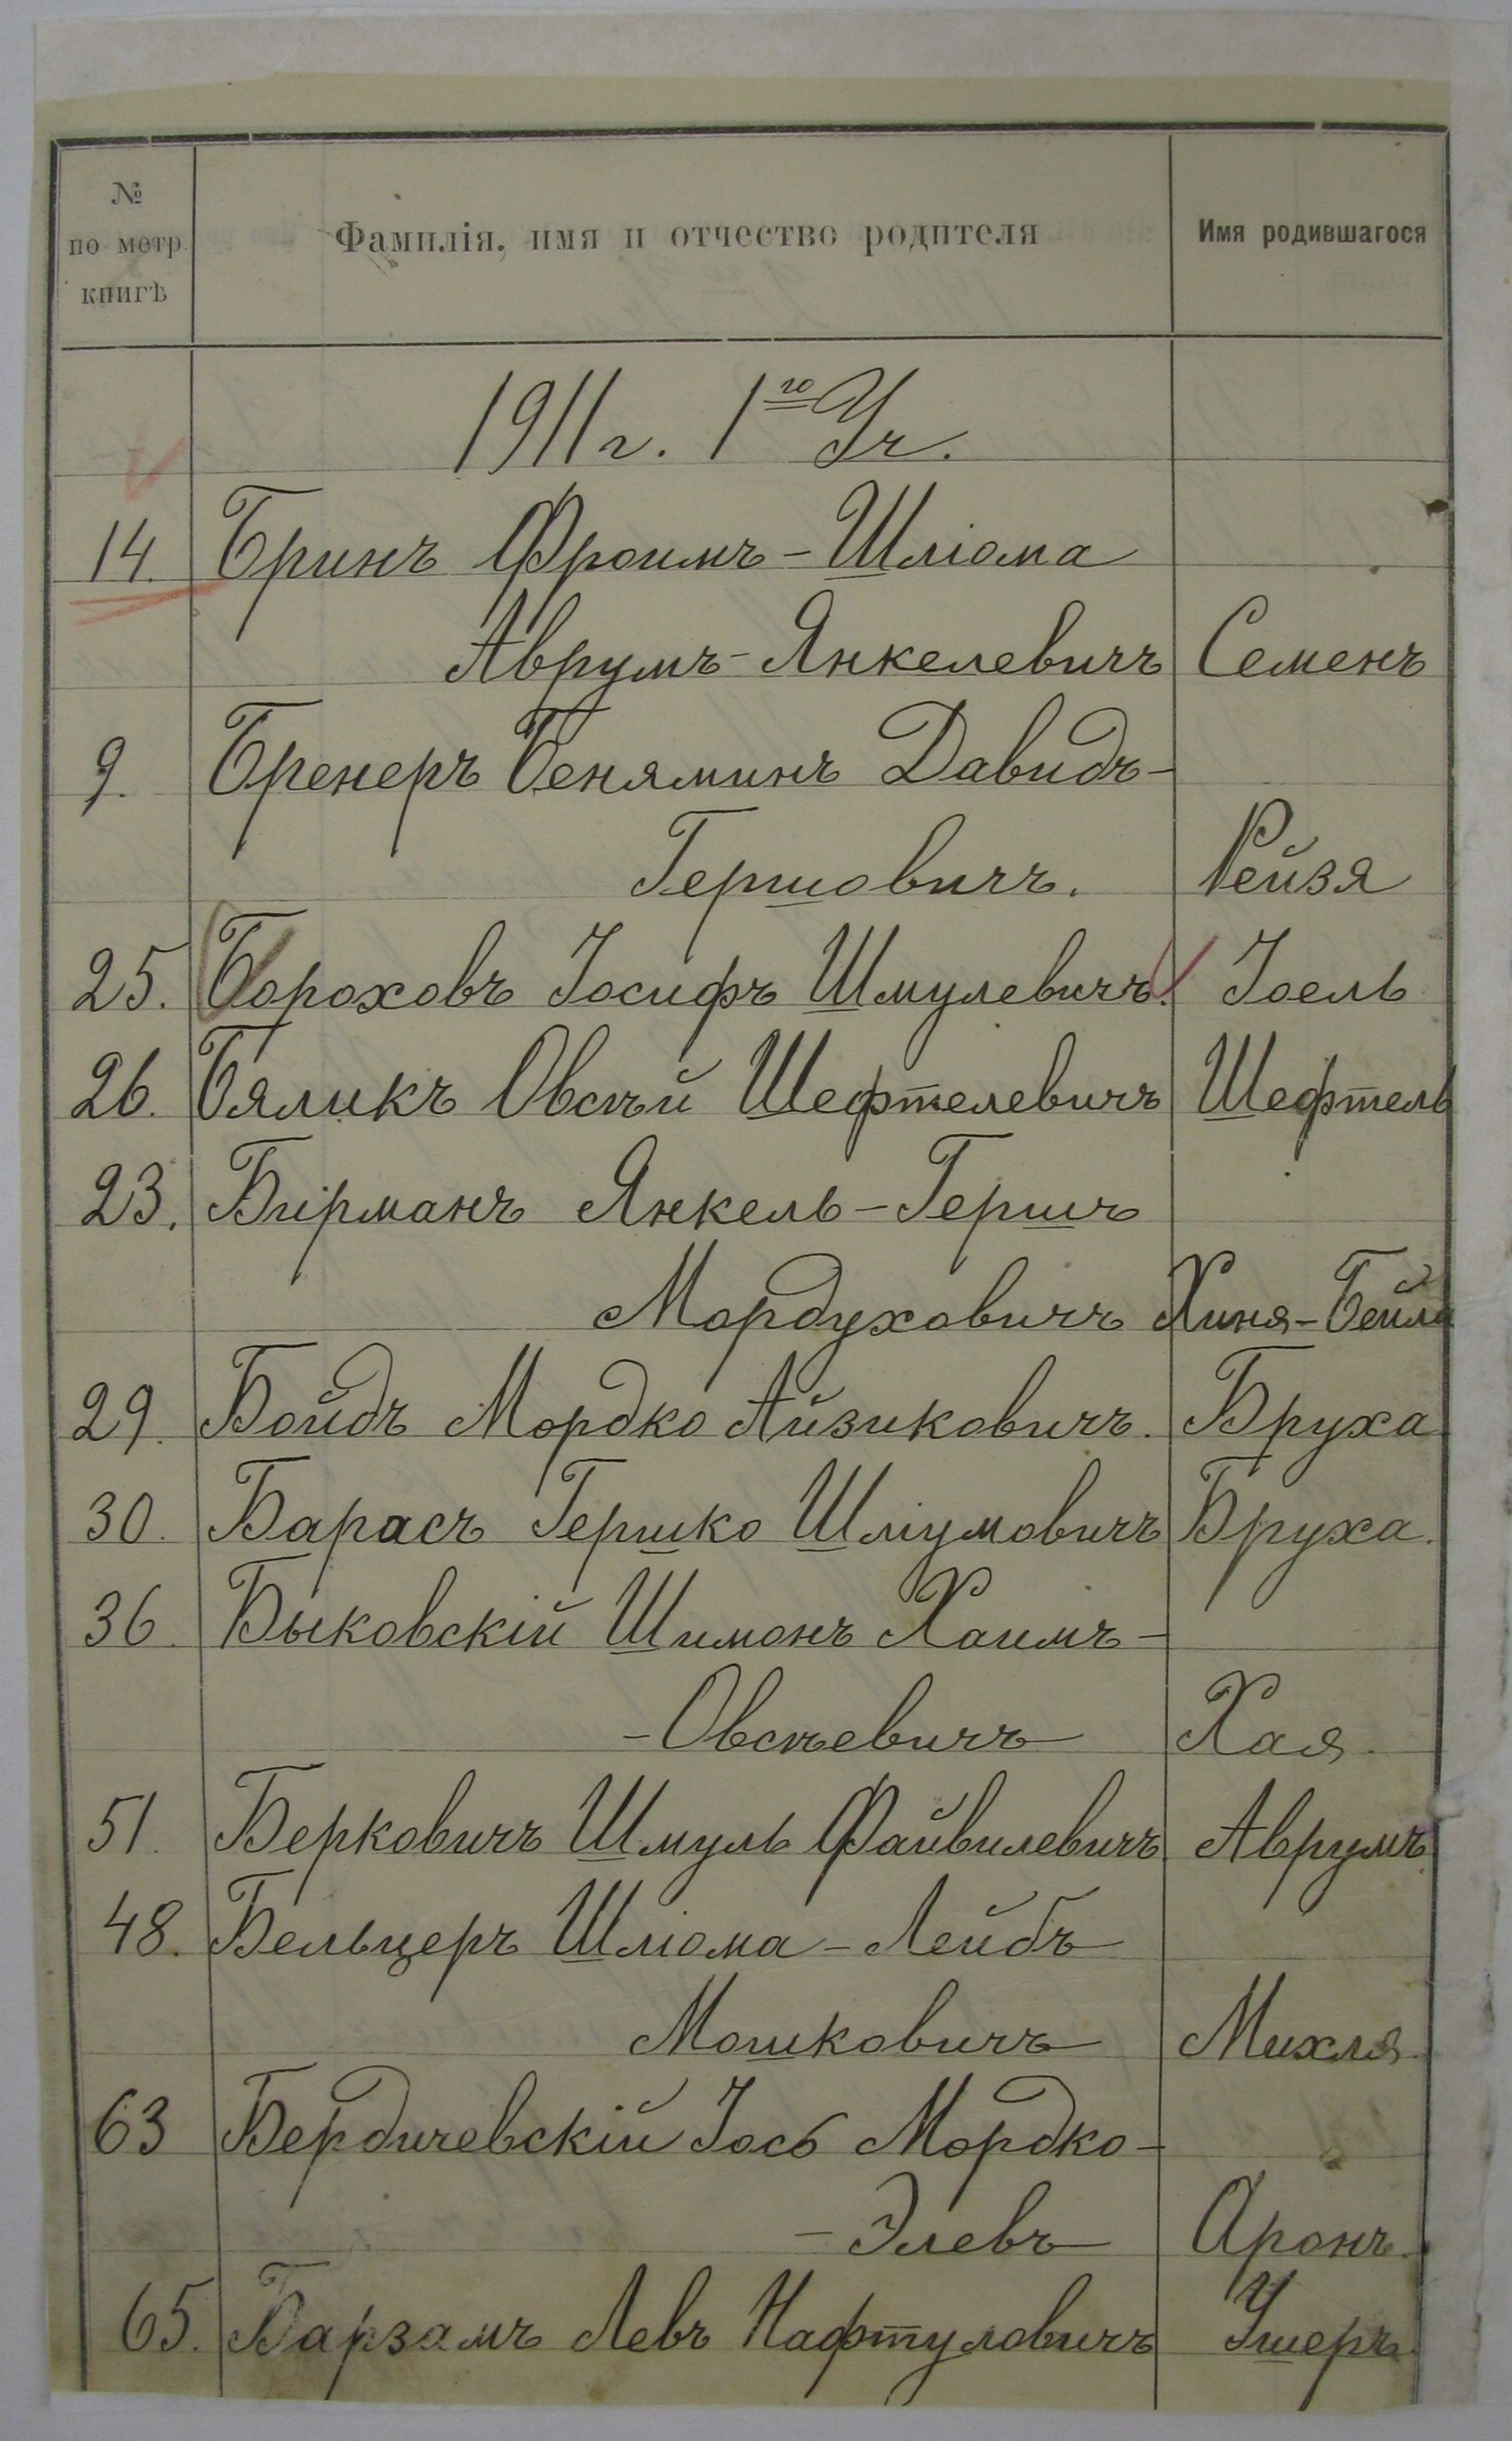 №
по метр.
книгѣ
Фамилія, имя и отчество родителя
Имя родившагося
1911 г. 1го Уч.
14. Бринъ Фроимъ-Шліома
Аврумъ-Янкелевичъ Семенъ
9. Бренеръ Беняминъ Давидъ-
Гершовичъ. Рейзя
25. Бороховъ Іосифъ Шмулевичъ. Іоель
26. Бяликъ Овсѣй Шефтелевичъ Шефтель
23. Бирманъ Янкель-Гершъ
Мордуховичъ Хиня-Бейла
29. Бойдъ Мордко Айзиковичъ. Бруха
30. Барасъ Гершко Шліумовичъ Бруха.
36. Быковскій Шимонъ Хаимъ-
-Овсѣевичъ Хая.
51. Берковичъ Шмуль Файвилевичъ Аврумъ
48. Бельцеръ Шліома-Лейбъ
Мошковичъ Михля.
63 Бердичевскій Іось Мордко-
-Элевъ Аронъ.
65. Барзамъ Левъ Нафтуловичъ Ушеръ.